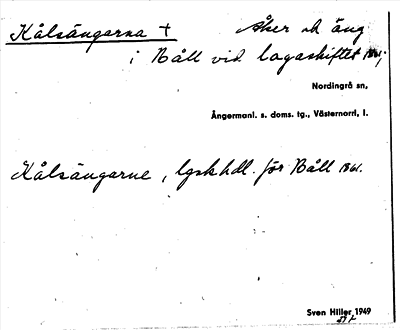 Kålsängarna † Åker och äng
i Båll vid lagaskiftet 1861;
Nordingrå sn,
Ångermanl. s. doms. tg., Västernorrl, l.
Kålsängarne, lgskhdl. för Båll 1861.
Sven Hiller 1949